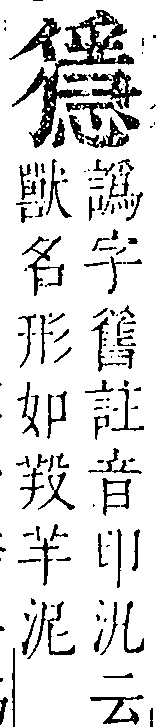 譌字舊註音印汎云
獸名形如羖羊泥